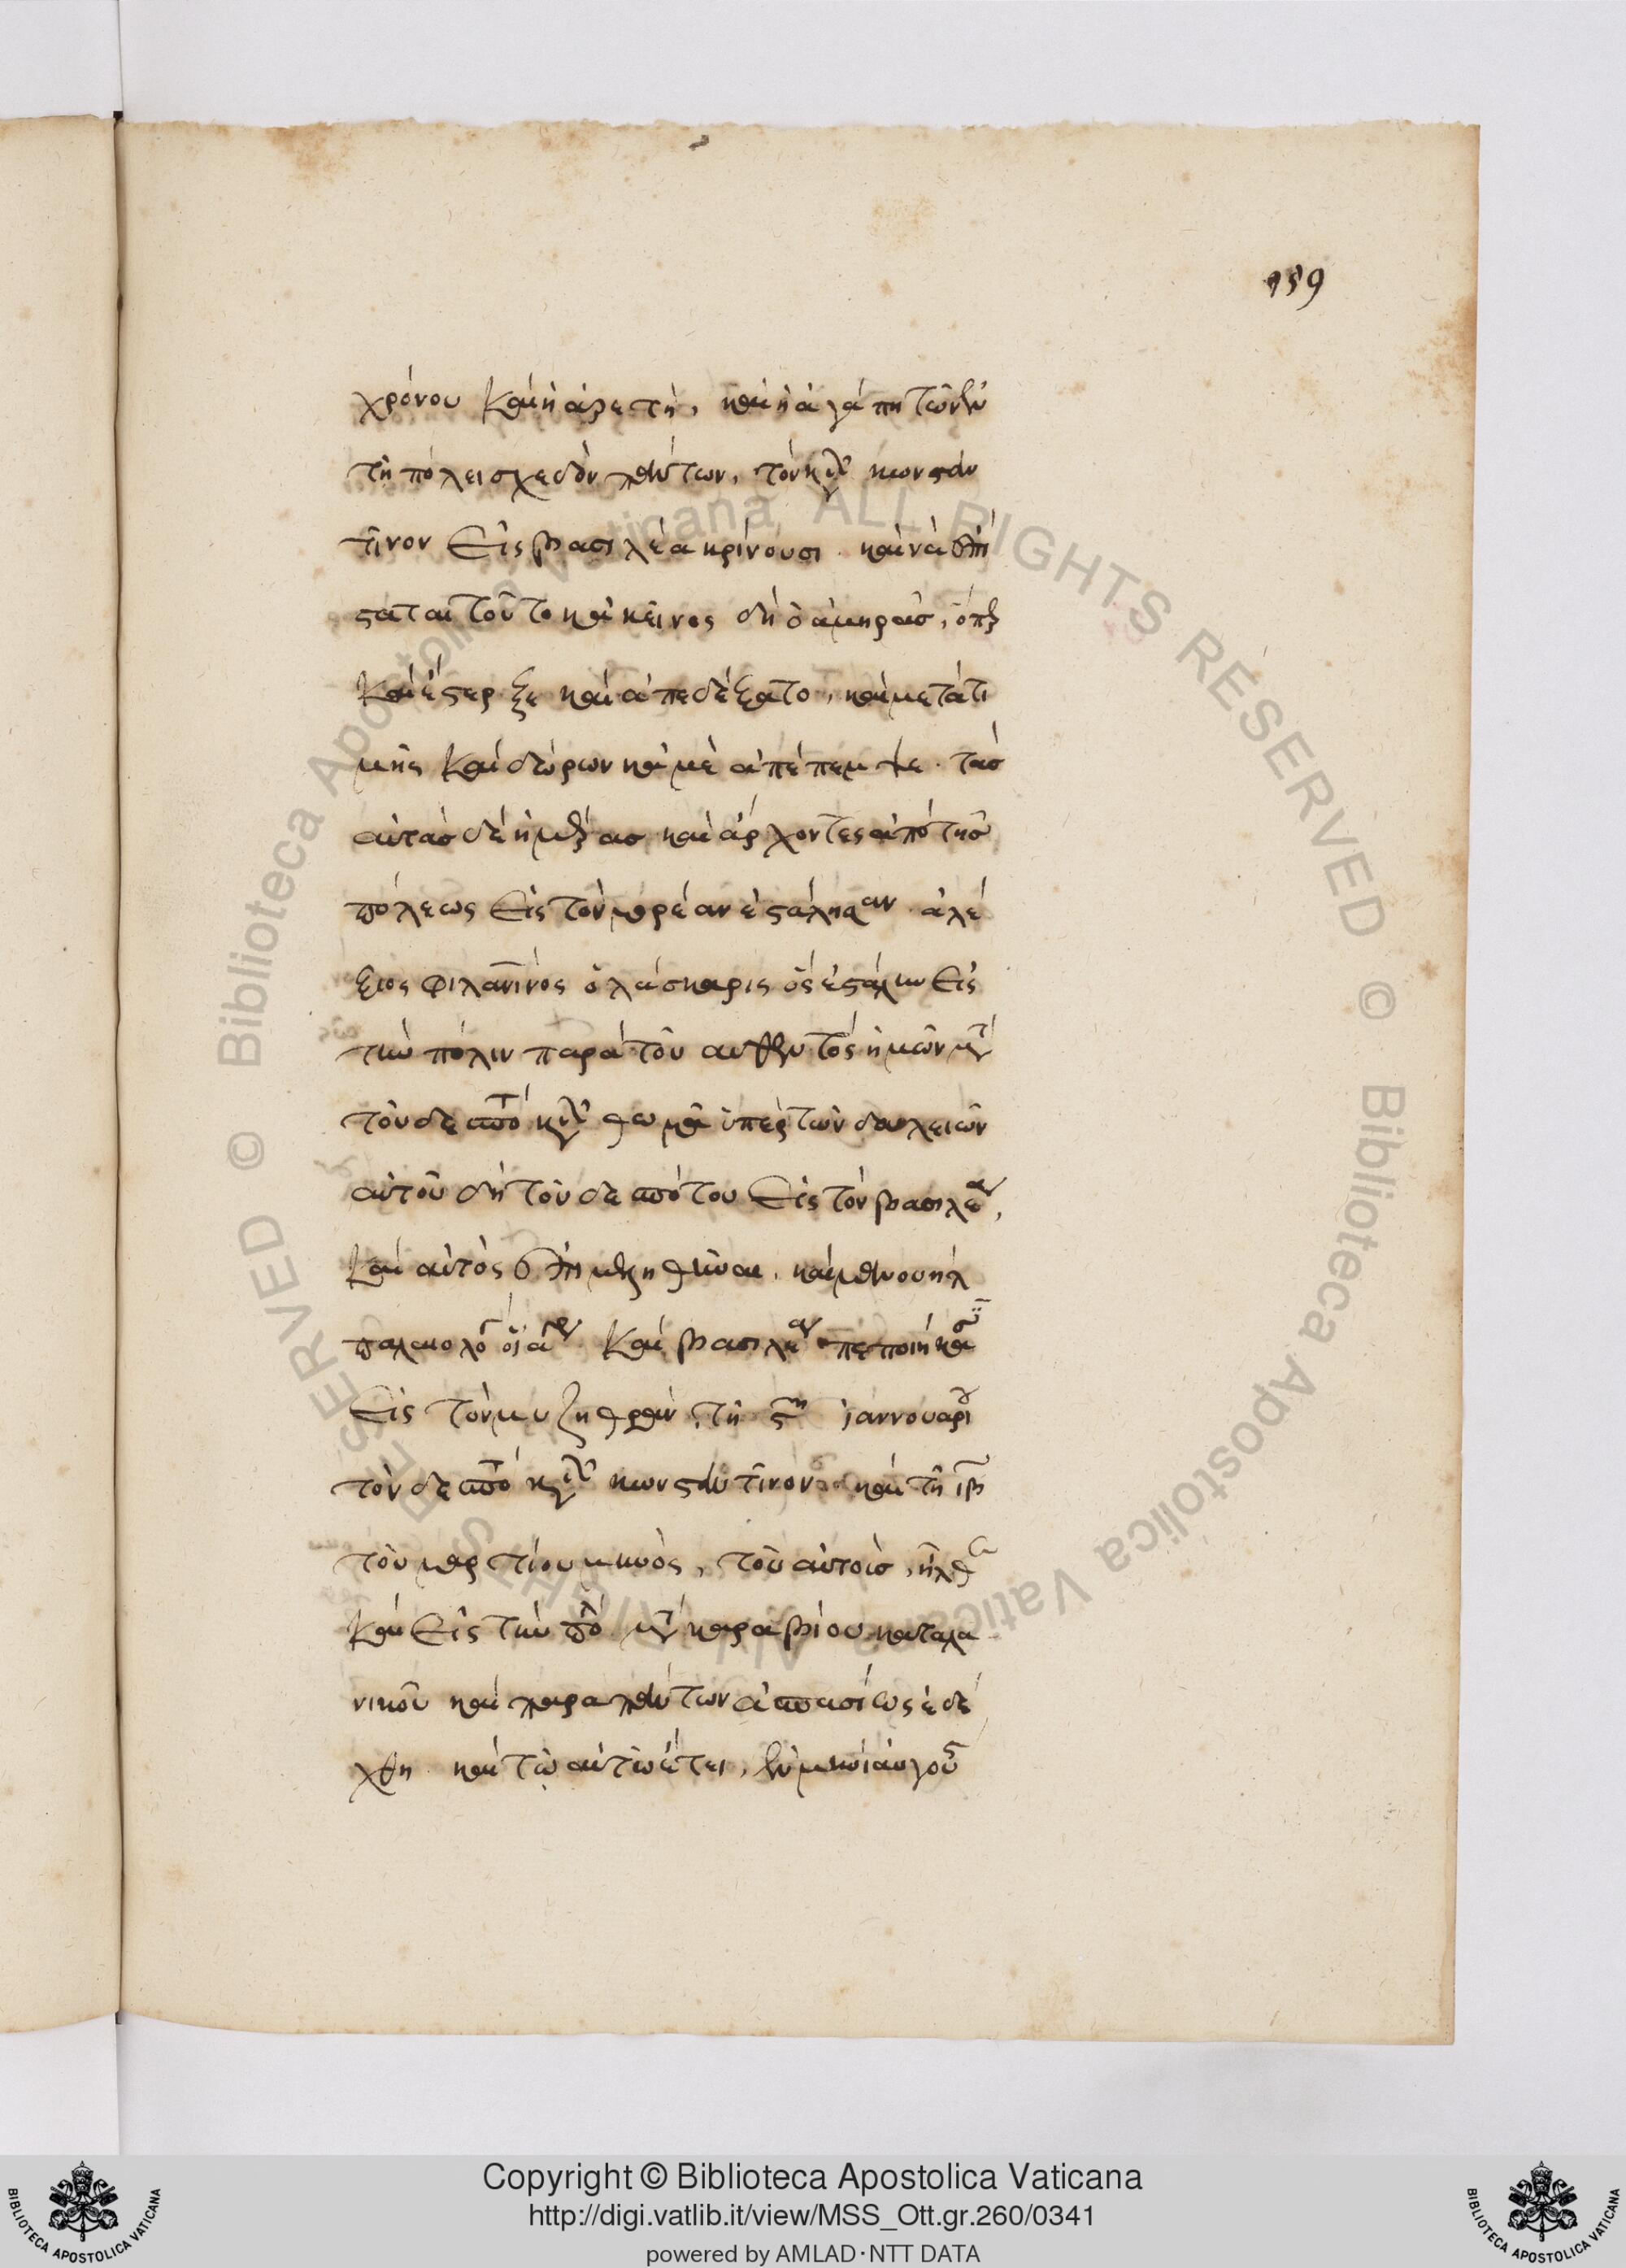 159
χρόνου καὶ ἡ ἀρετὴ, καὶ ἡ ἀγάπη τῶν ἐν
τῇ πόλει σχεδὸν πάντων, τὸν κῦρ κωνσταν
τῖνον εἰς βασιλέα κρίνουσι. καὶ νὰ ἐπί
σταται τοῦτο κἀκεῖνος δὴ ὁ ἀμηρᾶς, ὅπερ
καὶ ἔστερξε καὶ ἀπεδέξατο, καὶ μετὰ τι
μῆς καὶ δώρων καὶ μὲ ἀπέπεμψε. τὰς
αὐτὰς δὲ ἡμέρας καὶ ἄρχοντες ἀπὸ τῆς
πόλεως εἰς τὸν μορέαν ἐστάλησαν. ἀλέ
ξιος φιλανθινὸς ὁ λάσκαρις ὃς ἐστάλη εἰς
τὴν πόλιν παρὰ τοῦ αὐθεντὸς ἡμῶν μετὰ
τοῦ δεσπό κῦρ θωμᾶ ὑπὲρ τῶν δουλειῶν
αὐτοῦ δὴ τοῦ δεσπότου εἰς τὸν βασιλέαν,
καὶ αὐτὸς ἐπιμερηθῆναι. καὶ μανουὴλ
παλαιολόγ ὁ ἰάγαρ καὶ βασιλέαν πεποιήκασι
εἰς τὸν μυζηθρᾶν, τῇ ςη ἰαννουαρίου
τὸν δεσπότ κῦρ κωνσταντῖνον. καὶ τῇ ιβ
τοῦ μαρτίου μηνὸς, τοῦ αὐτοῖς, ἦλθεν
καὶ εἰς τὴν πόλ μετὰ καραβίου καταλα
νικοῦ καὶ παρὰ πάντων ἀσπασίως ἐδέ
χθη. καὶ τῷ αὐτῷ ἔτει, ἐν μηνὶ αὐγού
Copyright © Biblioteca Apostolica Vaticana
http://digi.vatlib.it/view/MSS_Ott.gr.260/0341
powered by AMLAD·NTT DATA
BIBLIOTECA APOSTOLICA VATICANA
BIBLIOTECA APOSTOLICA VATICANA
© Biblioteca Apostolica Vaticana ALL RIGHTS RESERVED © Biblioteca Apostolica Vaticana ALL RIGHTS RESERVED